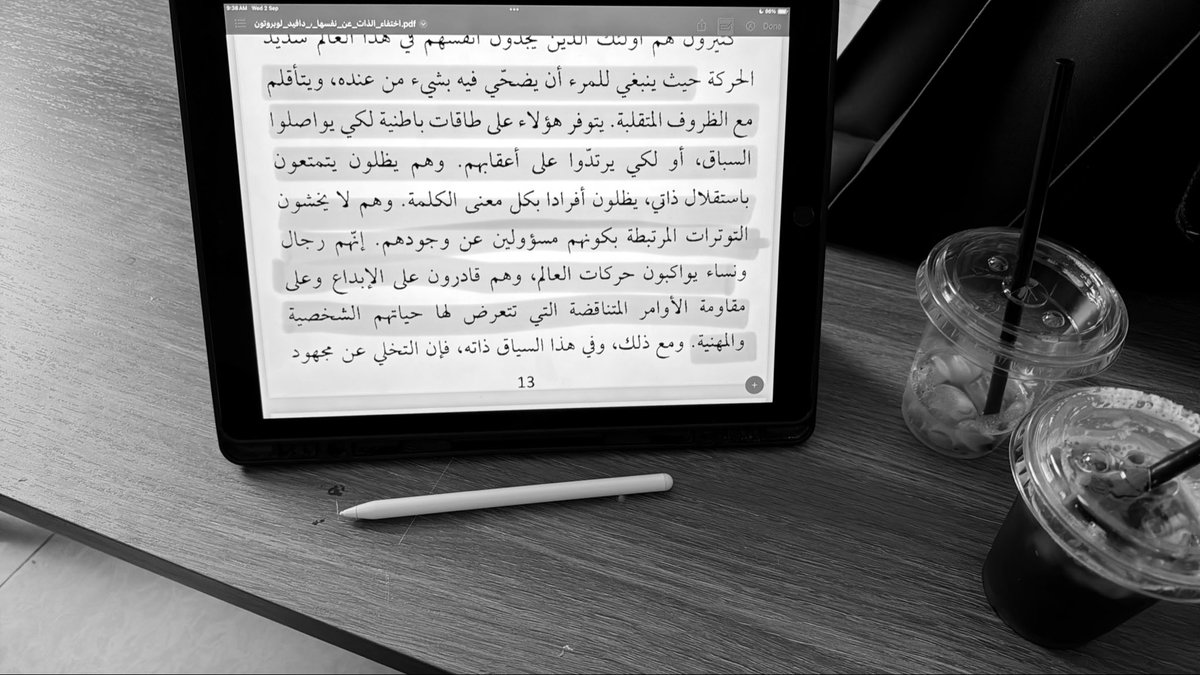 9:36 AM Wed 2 Sep
96%
اختفاء_الذات_عن_نفسها_ر_دافيد_لوبروتون.pdf
Done
كثيرون هم أولئك الذين يجدون أنفسهم في هذا العالم شديد
الحركة حيث ينبغي للمرء أن يضحّي فيه بشيء من عنده، ويتأقلم
مع الظروف المتقلبة. يتوفر هؤلاء على طاقات باطنية لكي يواصلوا
السباق، أو لكي يرتدّوا على أعقابهم. وهم يظلون يتمتعون
باستقلال ذاتي، يظلون أفرادا بكل معنى الكلمة. وهم لا يخشون
التوترات المرتبطة بكونهم مسؤولين عن وجودهم. إنّهم رجال
ونساء يواكبون حركات العالم، وهم قادرون على الإبداع وعلى
مقاومة الأوامر المتناقضة التي تتعرض لها حياتهم الشخصية
والمهنية. ومع ذلك، وفي هذا السياق ذاته، فإن التخلي عن مجهود
13